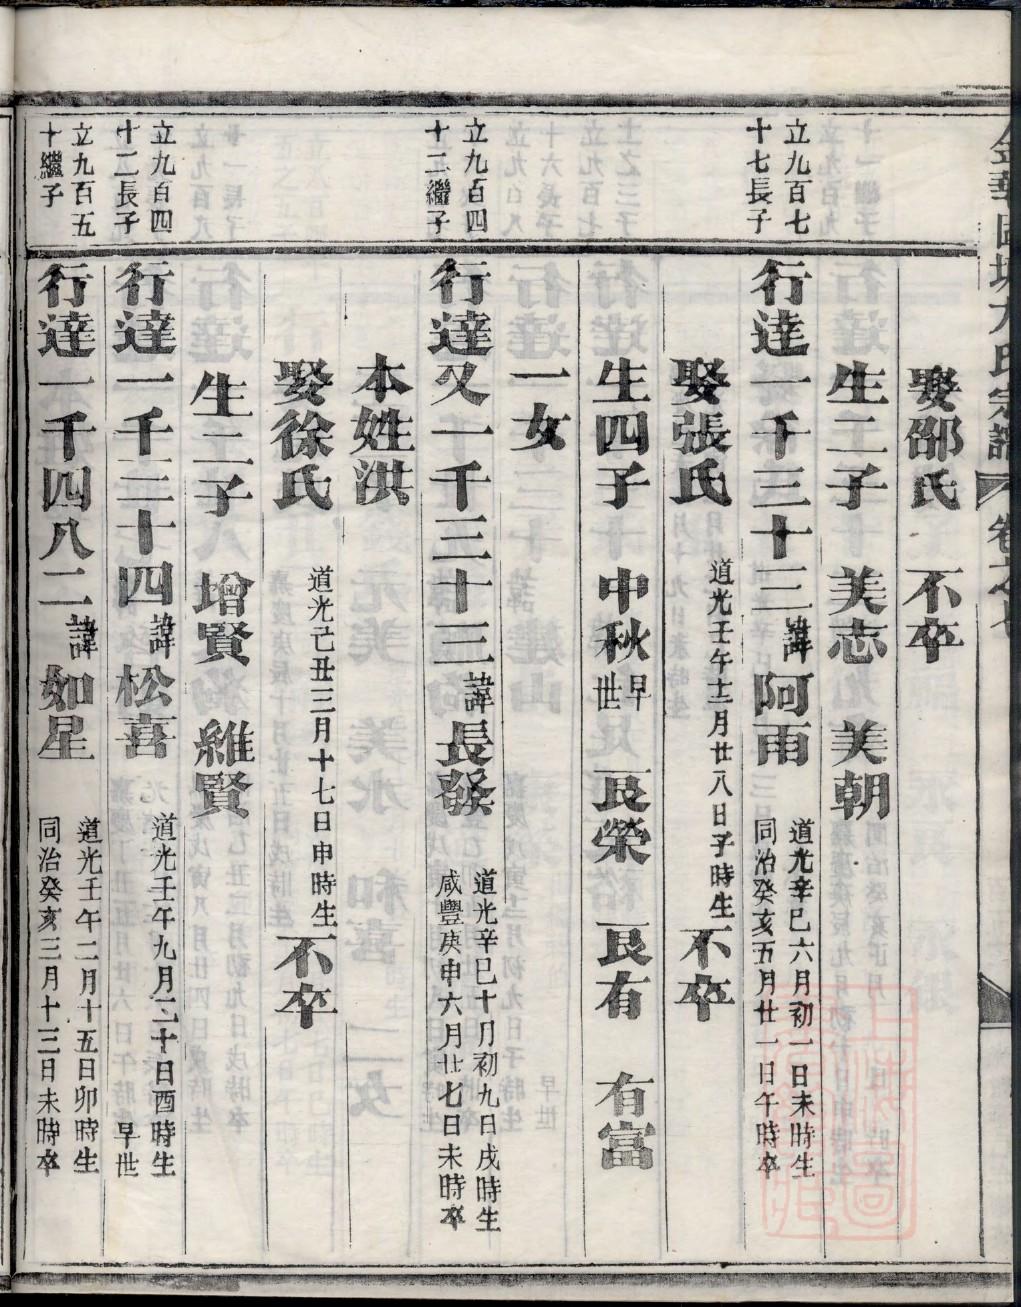 娶邵氏 不卒
生二子 美志 美朝
立九百七
十七長子
行達一千三十二諱阿雨 道光辛巳六月初一日未時生
同治癸亥五月廿一日午時卒
娶張氏 道光壬午十二月廿八日子時生 不卒
生四子 中秋早世 艮榮 艮有 有富
一女
立九百四
十二繼子
行達又一千三十三諱長發 道光辛巳十月初九日戌時生
咸豐庚申六月廿七日未時卒
本姓洪
娶徐氏 道光己丑三月十七日申時生 不卒
生二子 增賢 維賢
立九百四
十二長子
行達一千三十四諱松喜 道光壬午九月二十日酉時生
早世
立九百五
十繼子
行達一千四八二諱如星 道光壬午二月十五日卯時生
同治癸亥三月十三日未時卒